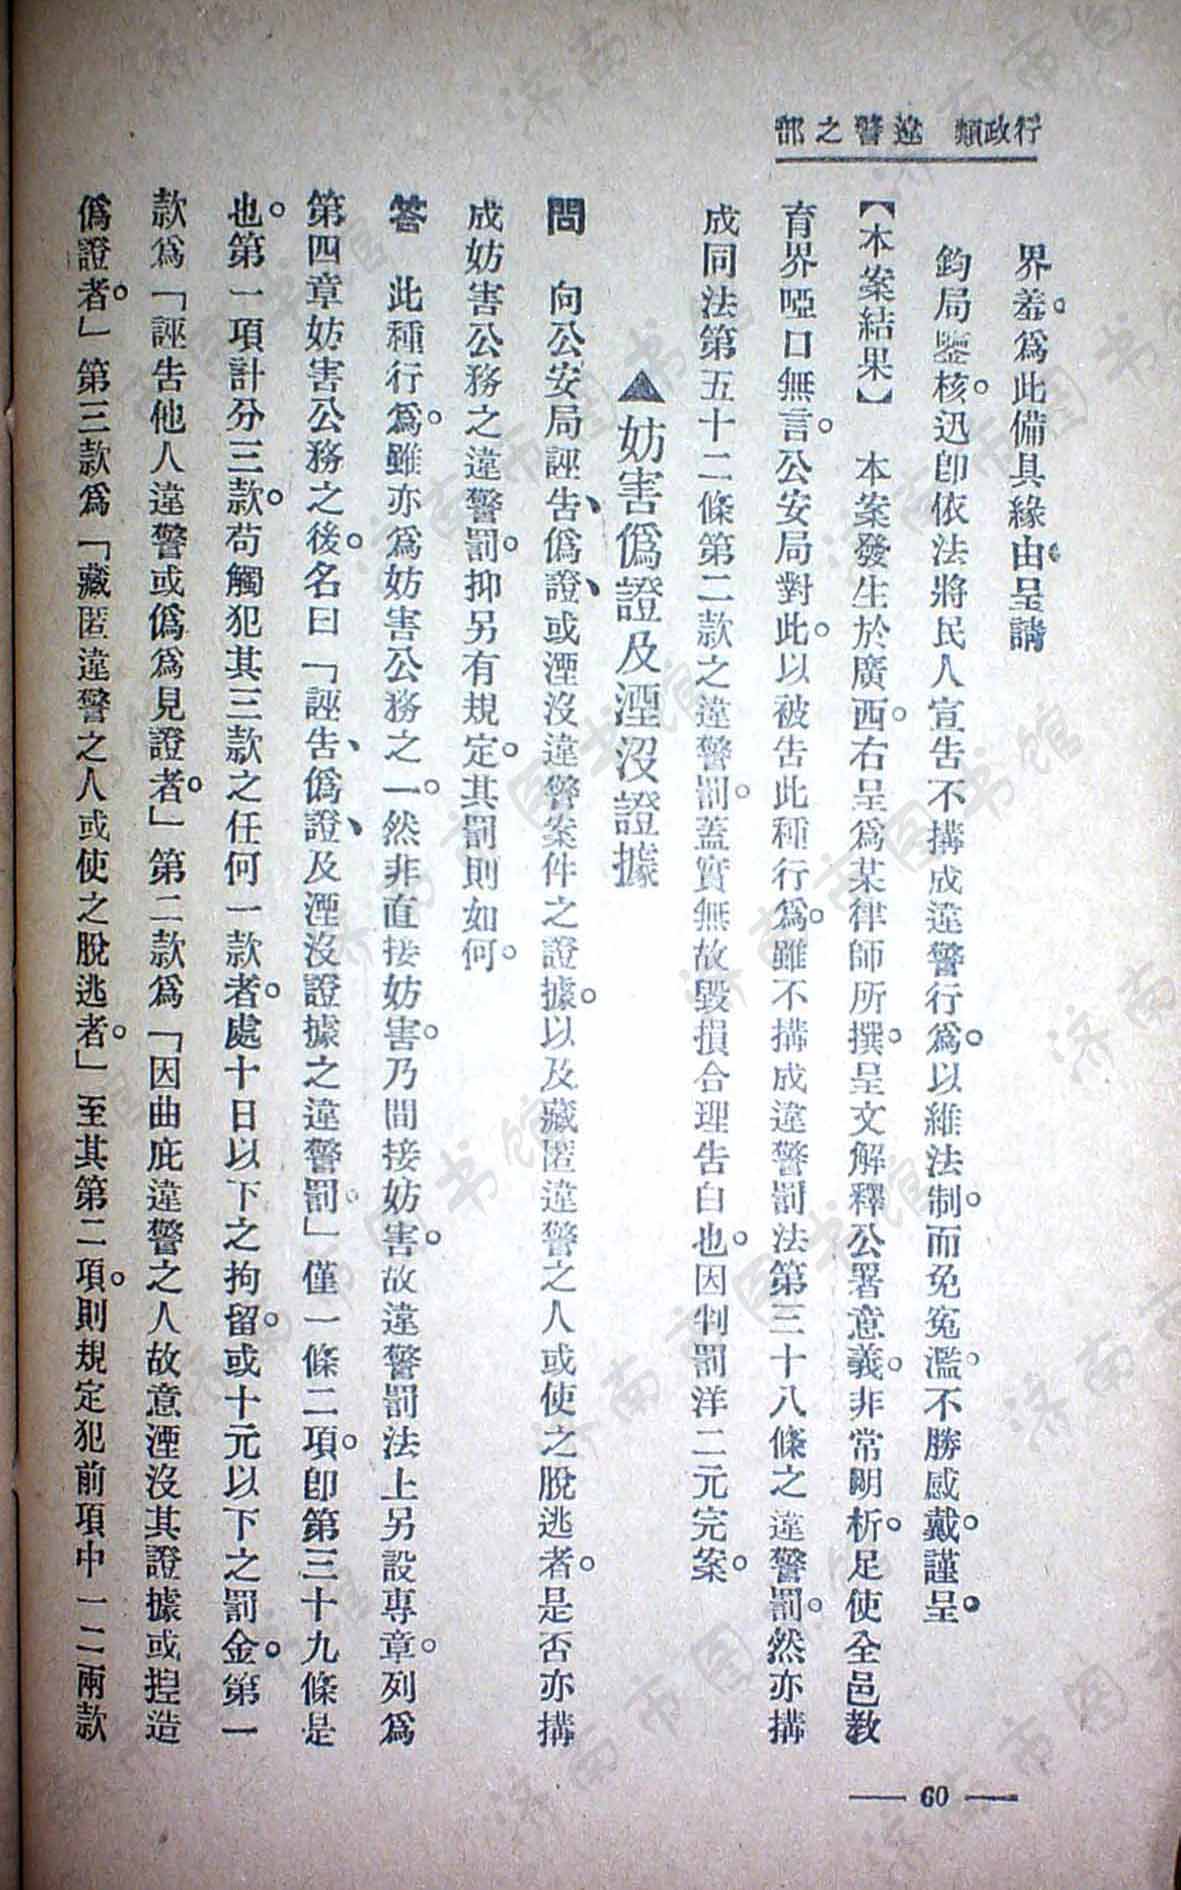 行政類　違警之部
界羞。爲此備具緣由。呈請
鈞局鑒核。迅卽依法將民人宣告不搆成違警行爲。以維法制。而免冤濫。不勝感戴。謹呈。
【本案結果】　本案發生於廣西。右呈爲某律師所撰。呈文解釋公署意義。非常明析。足使全邑教
育界啞口無言。公安局對此。以被告此種行爲。雖不搆成違警罰法第三十八條之違警罰。然亦搆
成同法第五十二條第二款之違警罰。蓋實無故毀損合理告白也。因判罰洋二元完案。
▲妨害僞證及湮沒證據
問　向公安局誣告、僞證、或湮沒違警案件之證據。以及藏匿違警之人或使之脫逃者。是否亦搆
成妨害公務之違警罰。抑另有規定。其罰則如何。
答　此種行爲。雖亦爲妨害公務之一。然非直接妨害。乃間接妨害。故違警罰法上另設專章。列爲
第四章妨害公務之後。名曰「誣告、僞證、及湮沒證據之違警罰。」僅一條二項。卽第三十九條是
也。第一項計分三款。苟觸犯其三款之任何一款者。處十日以下之拘留。或十元以下之罰金。第一
款爲「誣告他人違警或僞爲見證者。」第二款爲「因曲庇違警之人故意湮沒其證據或揑造
僞證者。」第三款爲「藏匿違警之人或使之脫逃者。」至其第二項。則規定犯前項中一二兩款
— 60 —
济南市图书馆